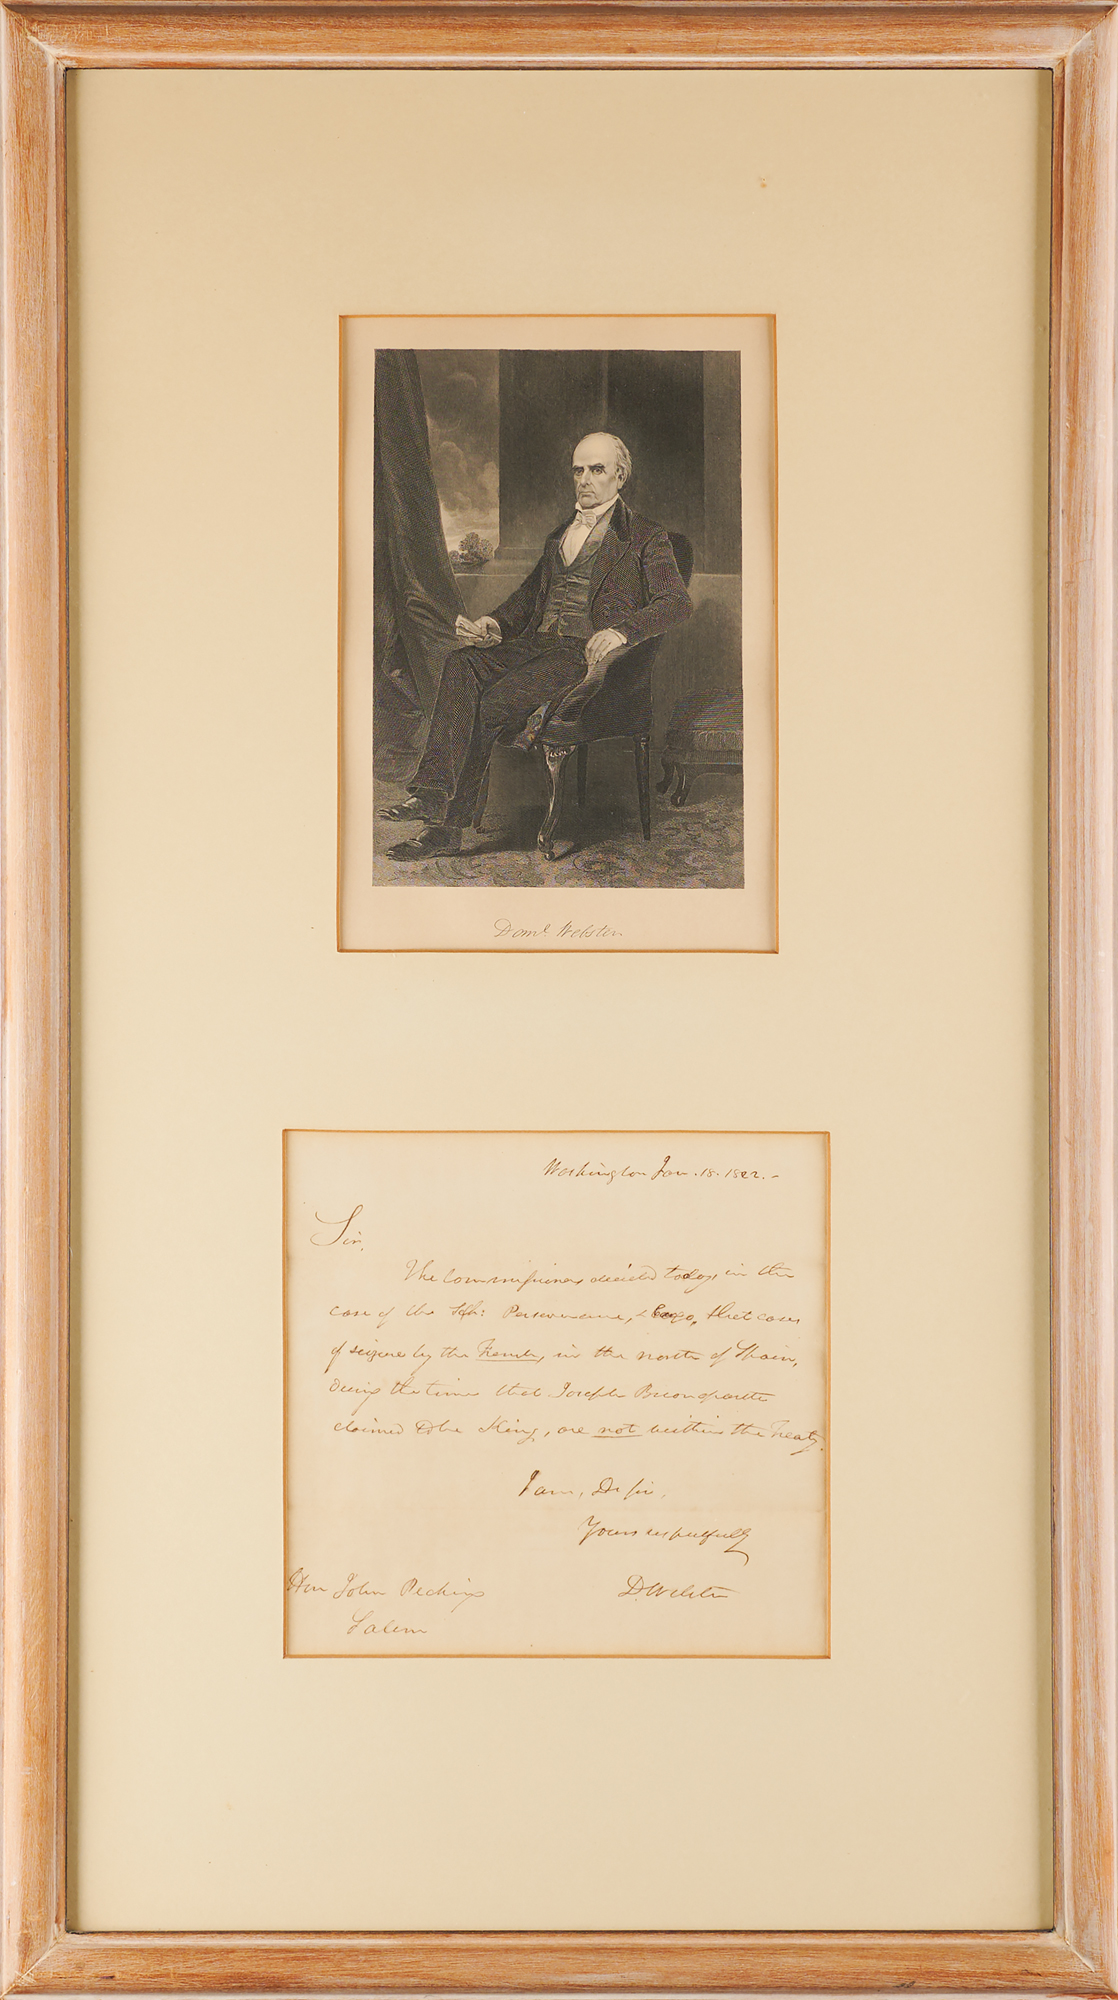 Danl. Webster
Washington Jan. 18. 1822.-
Sir,
The Commissioners decided today, in the
case of the Sch: Perseverance, & Cargo, that cases
of seizure by the French, in the north of Spain,
during the time that Joseph Buonaparte
claimed to be King, are not within the Treaty.
I am, Dr Sir,
Yours respectfully
D. Webster
Hon John Pickering
Salem